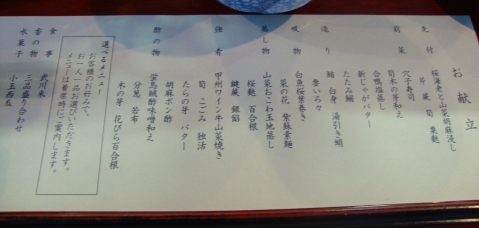 お献立
先付 桜海老と山菜胡麻浸し
芹 蕨 筍 粟麩
前菜 穴子寿司
筍木の芽和え
合鴨塩蒸し
新じゃがバター
たたみ鰯
造り 鮪 白身 湯引き鱧
妻いろいろ
吸物 白魚桜葉巻き
菜の花 紫蘇素麺
蒸し物 山菜おこわ玉地蒸し
桜麩 百合根
鍵蕨 銀餡
強肴 甲州ワイン牛山菜焼き
筍 こごみ 独活
たらの芽 バター
胡麻ポン酢
酢の物 蛍烏賊酢味噌和え
分葱 若布
木の芽 花びら百合根
選べるメニュー
お客様のお好みで、
お一人一品お選びいただきます。
メニューは着席時にご案内します。
食事 武川米
香の物 三品盛り合わせ
水菓子 小玉西瓜